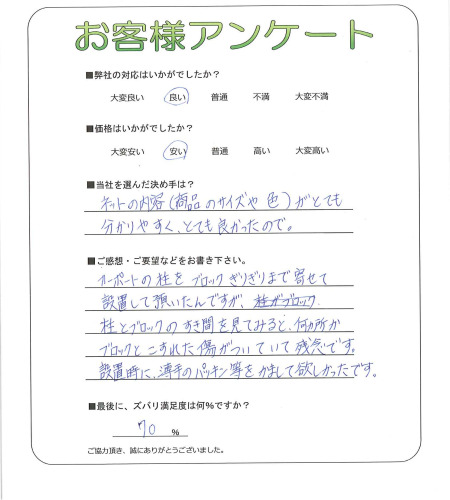 お客様アンケート
■弊社の対応はいかがでしたか?
大変良い 良い 普通 不満 大変不満
■価格はいかがでしたか?
大変安い 安い 普通 高い 大変高い
■当社を選んだ決め手は?
ネットの内容(商品のサイズや色)がとても
分かりやすく、とても良かったので。
■ご感想・ご要望などをお書き下さい。
カーポートの柱をブロックぎりぎりまで寄せて
設置して頂いたんですが、柱がブロック
柱とブロックのすき間を見てみると、何ヵ所か
ブロックとこすれた傷がついていて残念です。
設置時に、薄手のパッキン等をかまして欲しかったです。
■最後に、ズバリ満足度は何%ですか?
70 %
ご協力頂き、誠にありがとうございました。